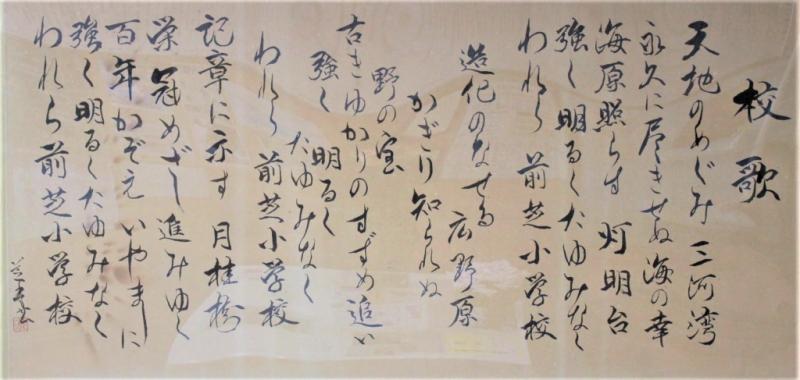 校歌
天地のめぐみ 三河湾
永久に尽きせぬ海の幸
海原照らす 灯明台
強く明るくたゆみなく
われら 前芝小学校
造化のなせる 広野原
かぎり知られぬ
野の宝
古きゆかりのすずめ追い
強く 明るく
たゆみなく
われら 前芝小学校
記章に示す 月桂樹
栄冠めざし進みゆく
百年かぞえ いやましに
強く明るくたゆみなく
われら前芝小学校